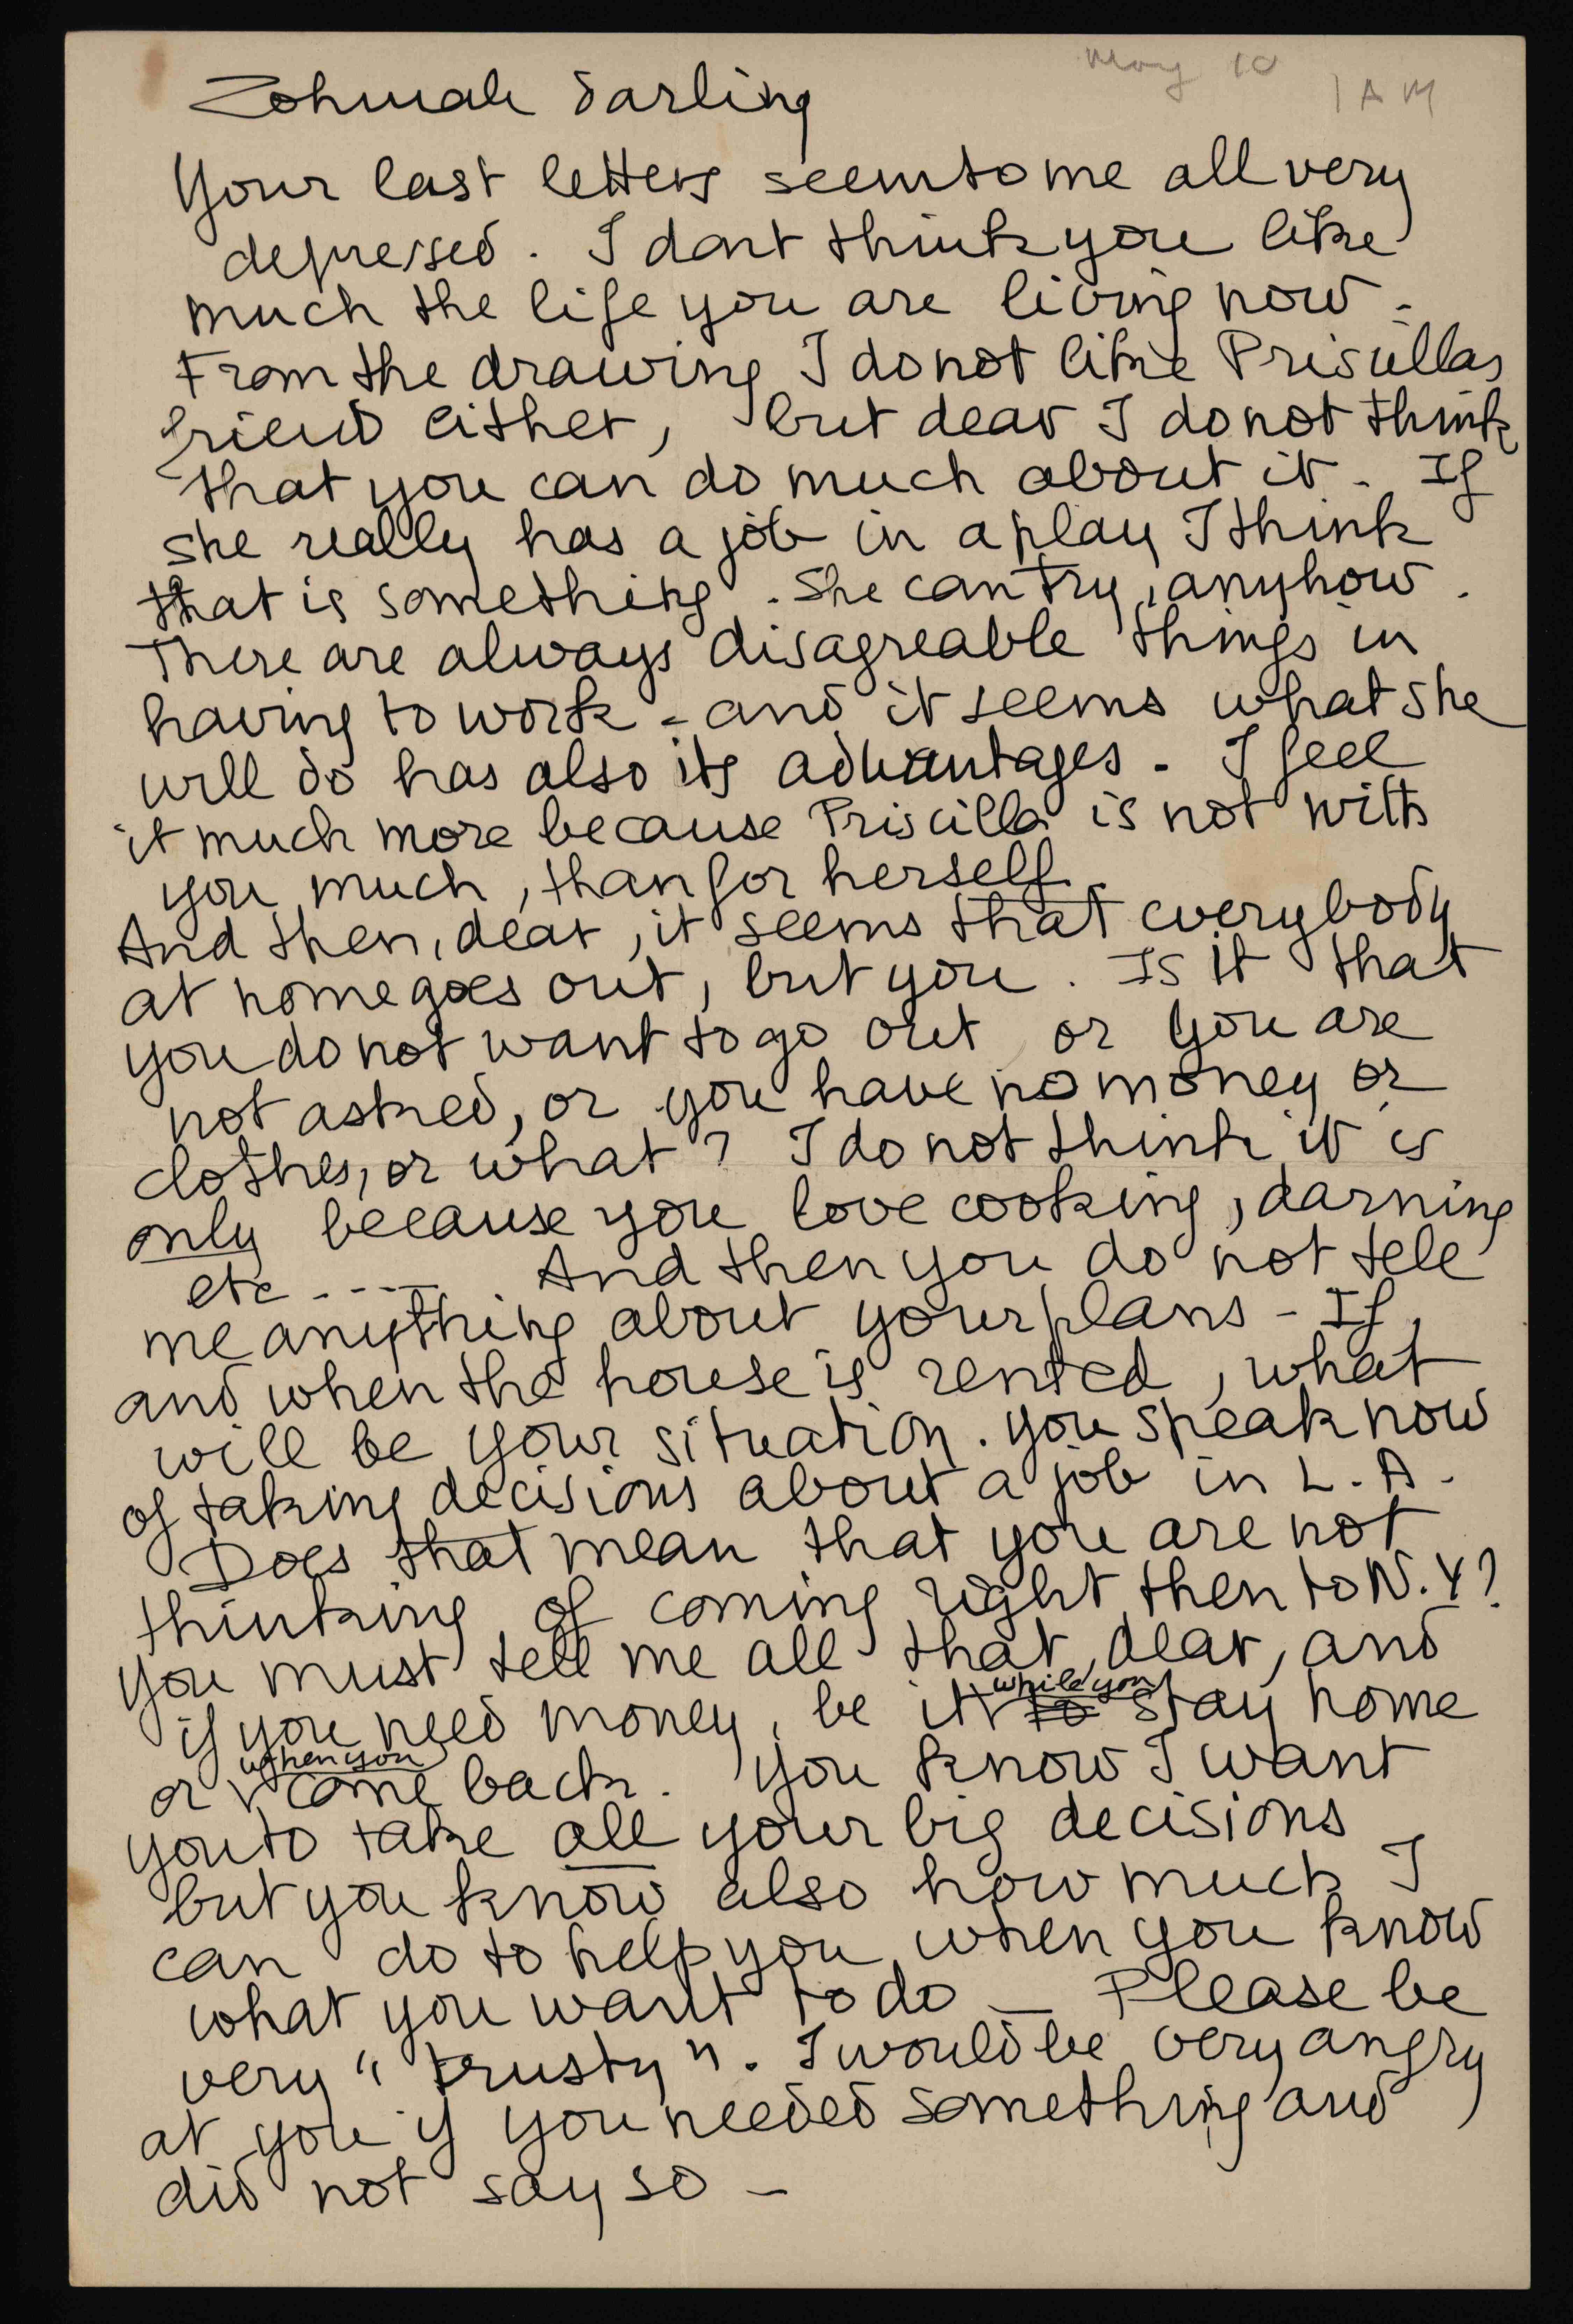 May 10
1 AM
Zohmah darling
Your last letters seem to me all very
depressed. I dont think you like
much the life you are living now -
From the drawing I do not like Priscillas
friend either, but dear I do not think
that you can do much about it - If
she really has a job in a play I think
that is something. She can try, anyhow.
There are always disagreable things in
having to work - and it seems what she
will do has also its advantages - I feel
it much more because Priscilla is not with
you much, than for herself
And then, dear, it seems that everybody
at home goes out, but you. Is it that
you do not want to go out or you are
not asked, or you have no money or
clothes, or what? I do not think it is
only because you love cooking, darning
etc ---- And then you do not tell
me anything about your plans - If,
and when the house is rented, what
will be your situation. You speak now
of taking decisions about a job in L.A.
Does that mean that you are not
thinking of coming right then to N.Y?
You must tell me all that, dear, and
if you need money, be it to while you stay home
or when you come back. You know I want
you to take all your big decisions
but you know also how much I
can do to help you when you know
what you want to do — Please be
very "trusty". I would be very angry
at you if you needed something and
did not say so -